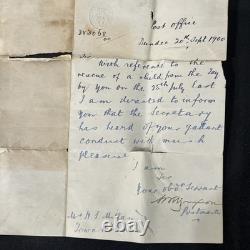 Post Office
Dundee 20th Sept 1900
Sir With reference to the
rescue of a child from the Tay
by you on the 25th July last
I am directed to inform
you that the Secretary
has heard of your gallant
conduct with much
pleasure
I am
Sir
Your obdt Servant
Postmaster